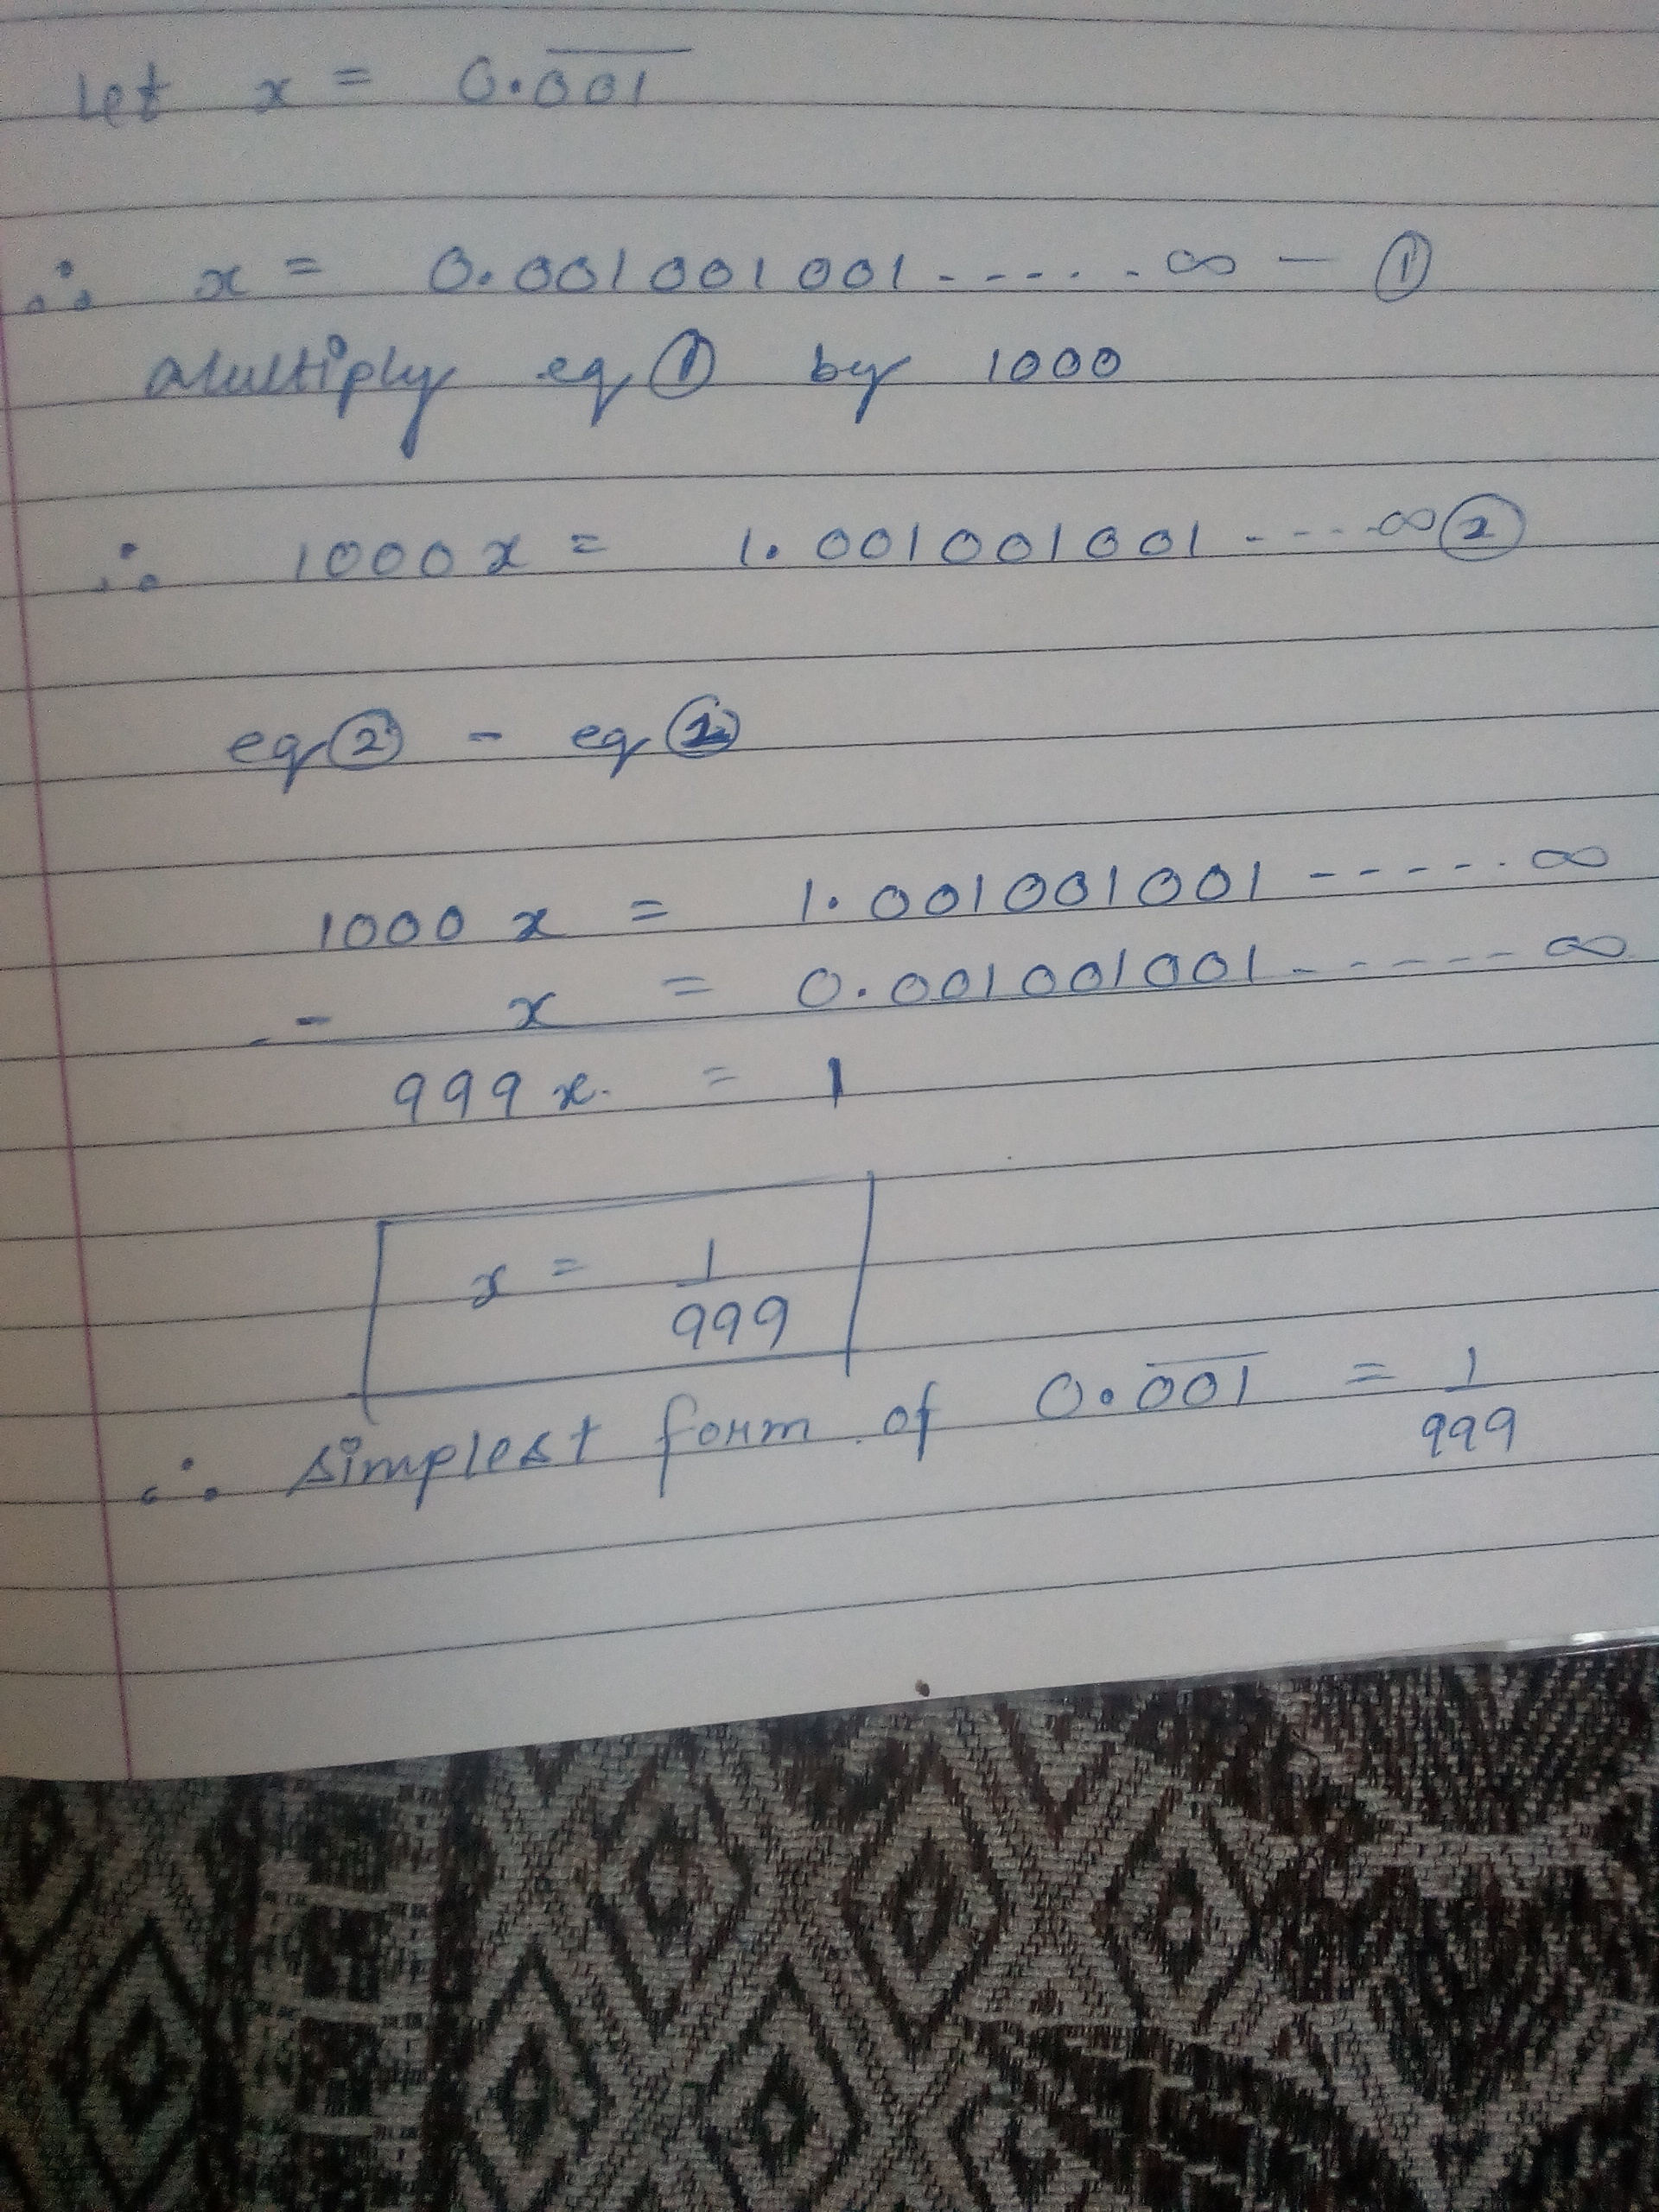 Let x = 0.0̅0̅1̅
∴ x = 0.001001001-----∞ — ①
Multiply eq ① by 1000
∴ 1000x = 1.001001001----∞ ②
eq ② - eq ①
1000 x = 1.001001001-----∞
- x = 0.001001001------∞
999x. = 1
x = 1/999
∴ simplest form of 0.0̅0̅1̅ = 1/999